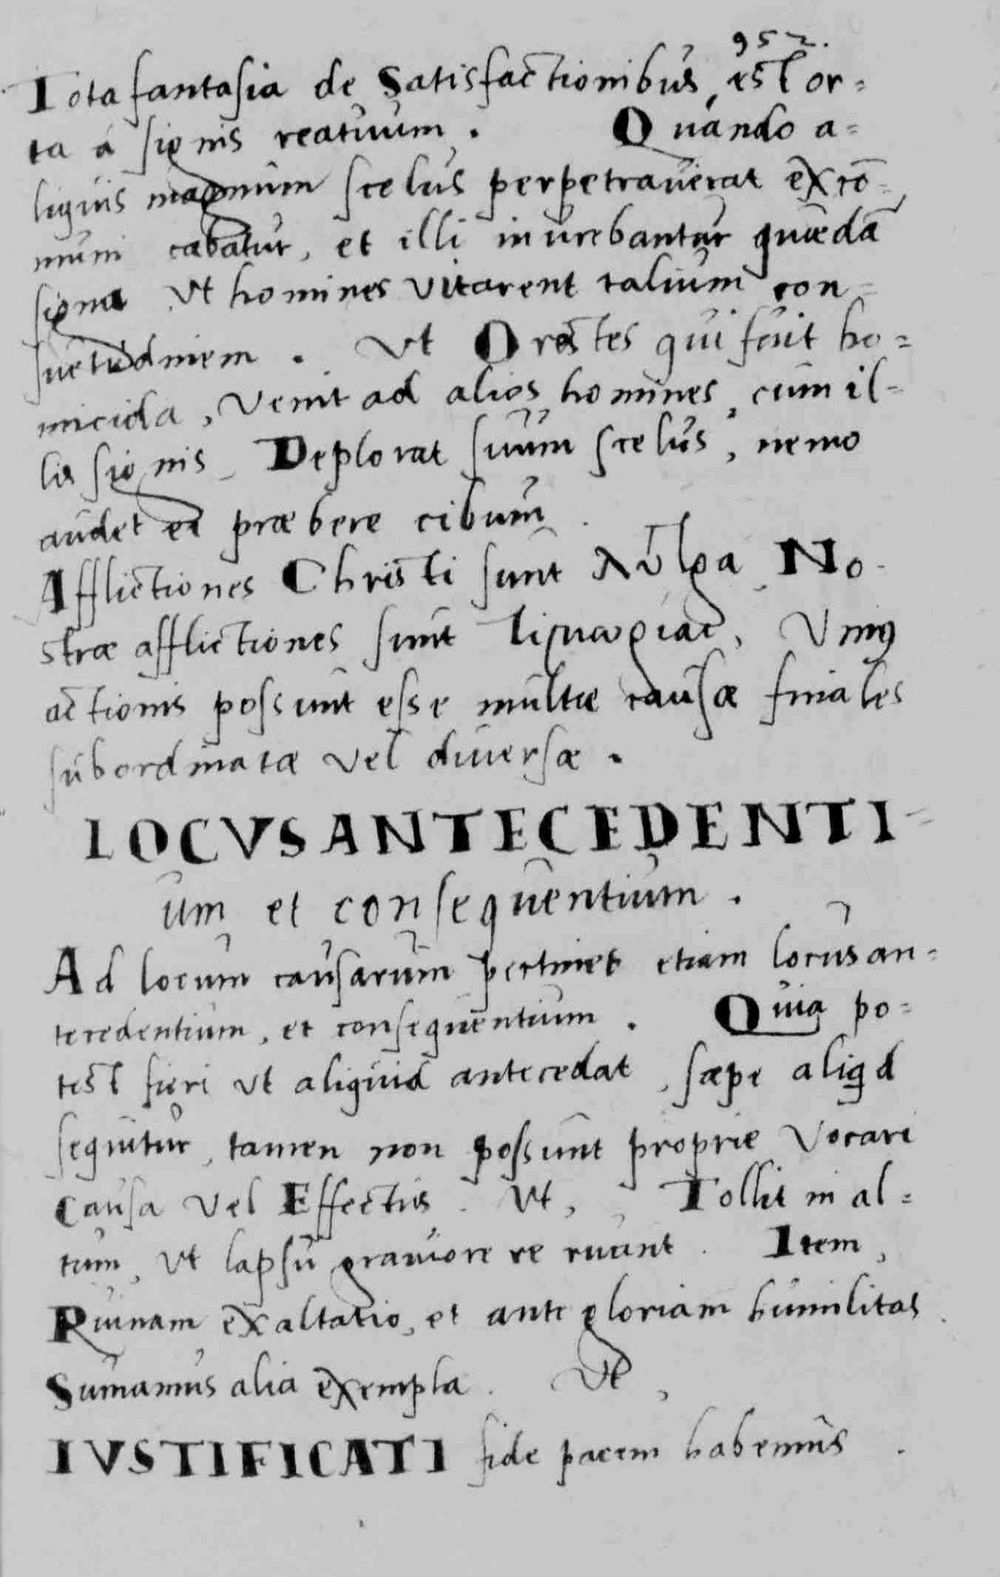 952.
Tota fantasia de Satisfactionibus, est or=
ta á signis reatuum. Quando a=
liquis magnum scelus perpetraverat exco̅=
muni cabatur, et illi inurebantur quæda̅
signa Ut homines vitarent talium con=
suetudinem. Ut Orestes qui fuit ho=
micida, Venit ad alios homines, cum il=
lis signis Deplorat suum scelus, nemo
audet ei præbere cibum
Afflictiones Christi sunt λύτρα No
stræ afflictiones sunt Unius
actionis possunt esse multæ causæ finales
subordinatæ vel diversæ.
LOCVS ANTECEDENTI=
um et consequentium.
Ad locum causarum pertinet etiam locus an=
tecedentium, et consequentium. Quia po=
test fieri ut aliquid antecedat, sæpe aliqd
sequitur, tamen non possunt proprie Vocari
Causa vel Effectus. Ut, Tollit in al=
tum, Ut lapsu graviore ruant. Item,
Ruinam exaltatio, et ante gloriam humilitas.
Sumamus alia exempla. Ut,
IVSTIFICATI fide pacem habemus.